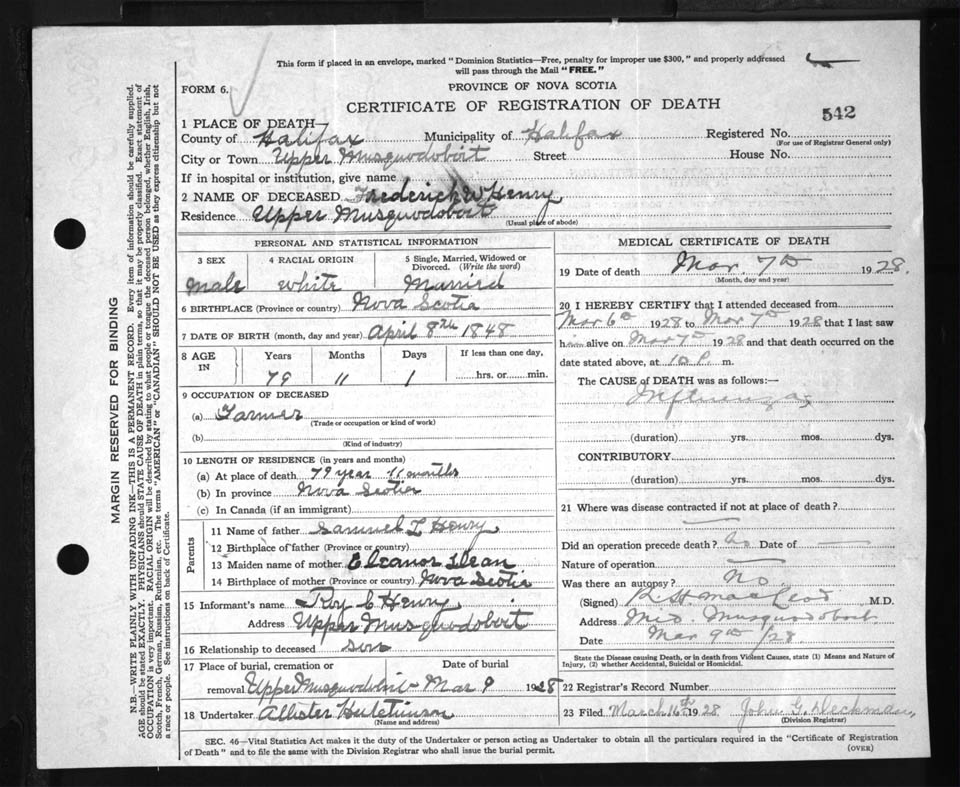 This form if placed in an envelope, marked "Dominion Statistics—Free, penalty for improper use $300," and properly addressed
will pass through the Mail "FREE."
FORM 6.
PROVINCE OF NOVA SCOTIA
CERTIFICATE OF REGISTRATION OF DEATH
542
1 PLACE OF DEATH—
County of Halifax Municipality of Halifax Registered No.
(For use of Registrar General only)
City or Town Upper Musquodobit Street House No.
If in hospital or institution, give name
2 NAME OF DECEASED Frederick W Henry
Residence Upper Musquodobit
(Usual place of abode)
PERSONAL AND STATISTICAL INFORMATION
3 SEX 4 RACIAL ORIGIN 5 Single, Married, Widowed or
Divorced. (Write the word)
Male white Married
6 BIRTHPLACE (Province or country) Nova Scotia
7 DATE OF BIRTH (month, day and year) April 8th 1848
8 AGE IN Years Months Days If less than one day,
79 11 1 hrs. or min.
9 OCCUPATION OF DECEASED
(a) Farmer
(Trade or occupation or kind of work)
(b)
(Kind of industry)
10 LENGTH OF RESIDENCE (in years and months)
(a) At place of death 79 year 11 months
(b) In province Nova Scotia
(c) In Canada (if an immigrant)
Parents
11 Name of father Samuel L Henry
12 Birthplace of father (Province or country)
13 Maiden name of mother Eleanor Dean
14 Birthplace of mother (Province or country) Nova Scotia
15 Informant's name Roy C Henry
Address Upper Musquodobit
16 Relationship to deceased son
17 Place of burial, cremation or Date of burial
removal Upper Musquodobit Mar 9 1928
18 Undertaker Allister Hutchinson
(Name and address)
MEDICAL CERTIFICATE OF DEATH
19 Date of death Mar. 7th 1928.
(Month, day and year)
20 I HEREBY CERTIFY that I attended deceased from
Mar 6th 1928 to Mar 7th 1928 that I last saw
h alive on Mar 7th 1928 and that death occurred on the
date stated above, at 10 P. m.
The CAUSE of DEATH was as follows:—
Influenza
(duration) yrs. mos. dys.
CONTRIBUTORY
(duration) yrs. mos. dys.
21 Where was disease contracted if not at place of death?
Did an operation precede death? No Date of
Nature of operation
Was there an autopsy? No.
(Signed) MacLeod M.D.
Address Mid. Musquodoboit
Date Mar 9th /28.
State the Disease causing Death, or in death from Violent Causes, state (1) Means and Nature of
Injury, (2) whether Accidental, Suicidal or Homicidal.
22 Registrar's Record Number
23 Filed March 16th 1928 John G.
(Division Registrar)
SEC. 46—Vital Statistics Act makes it the duty of the Undertaker or person acting as Undertaker to obtain all the particulars required in the "Certificate of Registration
of Death" and to file the same with the Division Registrar who shall issue the burial permit.
(OVER)
MARGIN RESERVED FOR BINDING
N.B.—WRITE PLAINLY WITH UNFADING INK—THIS IS A PERMANENT RECORD. Every item of information should be carefully supplied.
AGE should be stated EXACTLY. PHYSICIANS should STATE CAUSE OF DEATH in plain terms, so that it may be properly classified. Exact statement of
OCCUPATION is very important. RACIAL ORIGIN will be described by stating to what people or tongue the deceased person belonged, whether English, Irish,
Scotch, French, German, Russian, Ruthenian, etc. The terms "AMERICAN" or "CANADIAN" SHOULD NOT BE USED as they express citizenship but not
a race or people. See instructions on back of Certificate.